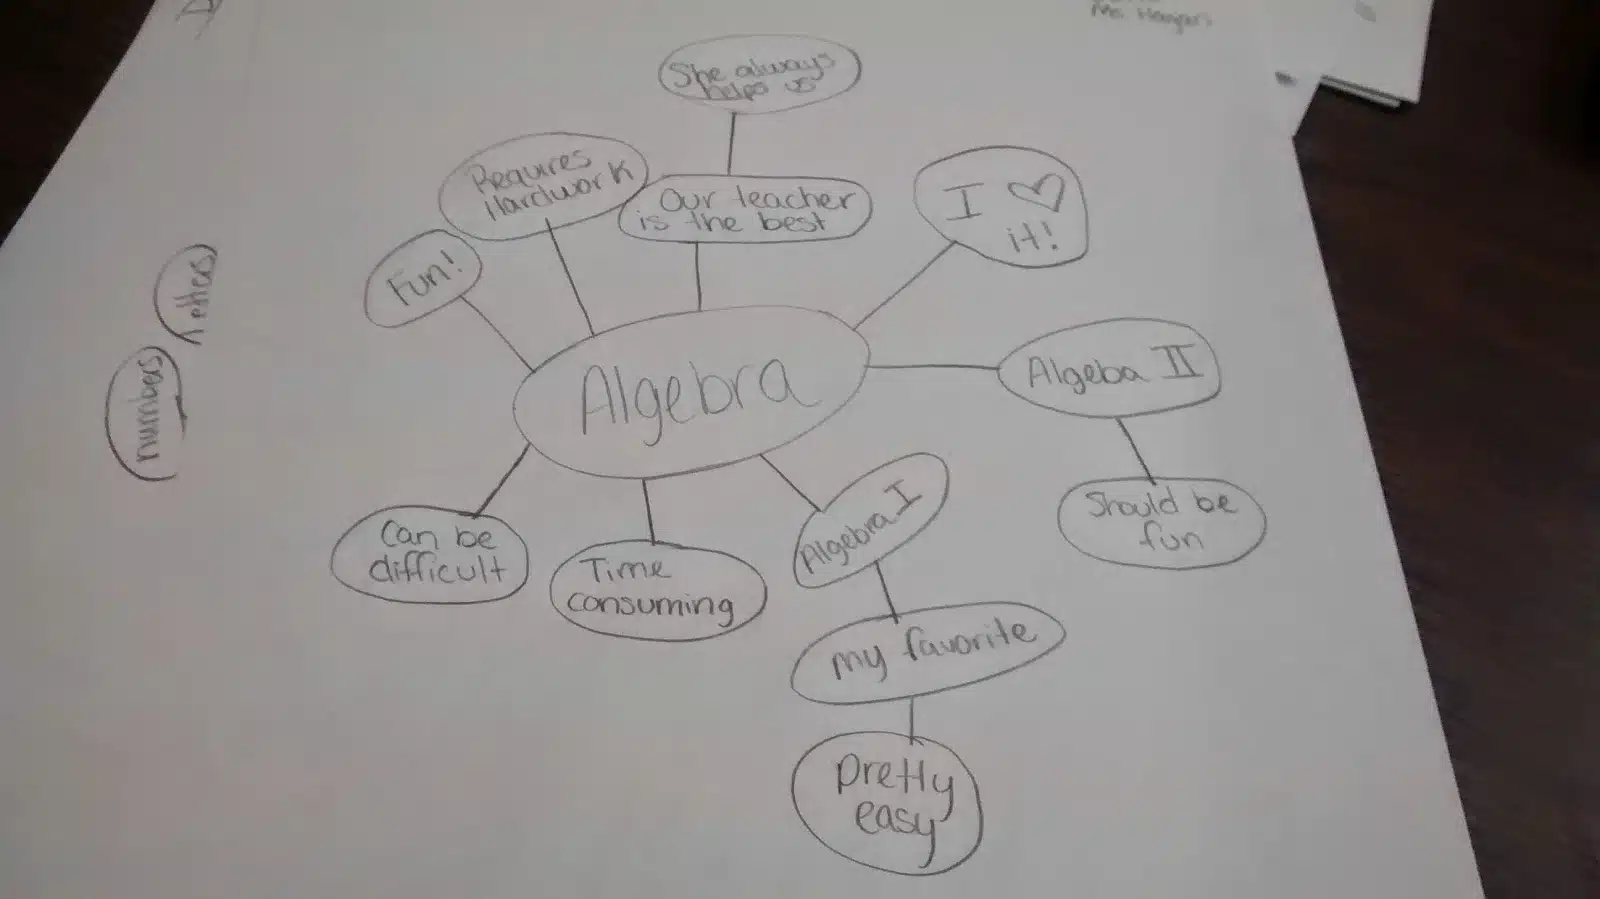 She always
helps us
Requires
Hardwork
Our teacher
is the best
I ♡
it!
Fun!
Algebra
Algeba II
Should be
fun
Can be
difficult
Time
consuming
Algebra I
my favorite
pretty
easy
letters
numbers